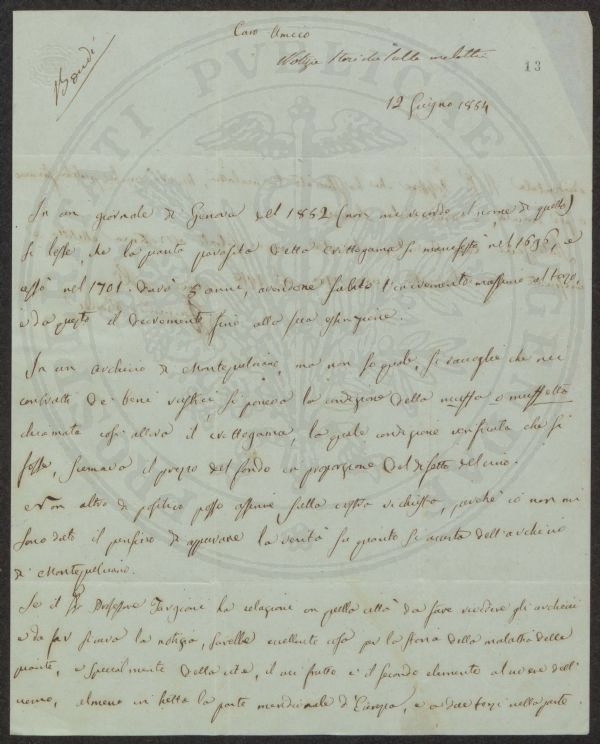 Caro Amico
Bondi
Notizie storiche sulla malattia
13
12 Giugno 1854
In un giornale di Genova del 1852 (non mi ricordo il nome di quello)
si lesse, che la pianta parasita detta crittogama si manifestò nel 1696, e
cessò nel 1701. durò 5 anni, avendone subito l'incremento massimo al terzo,
e da questo il decremento fino alla sua estinzione.
In un archivio di Montepulciano, ma non so quale, si raccoglie che nei
contratti de' beni rustici, si poneva la condizione della muffa o muffetta
chiamata così allora il crittogama, la quale condizione verificata che si
fosse, scemava il prezzo del fondo in proporzione del difetto del vino.
Non altro di positivo posso asserire sulla vostra richiesta, perchè io non mi
sono dato il pensiero di appurare la verità su quanto si accerta dell'archivio
di Montepulciano.
Se il Sr Professore Targioni ha relazione con quella città da fare vedere gli archivi
e da far la notizia, sarebbe eccellente cosa per la storia della malattia delle
piante, e specialmente della vite, il cui frutto è il secondo elemento al vivere dell'
uomo, almeno in tutta la parte meridionale d'Europa, e a due terzi nella parte